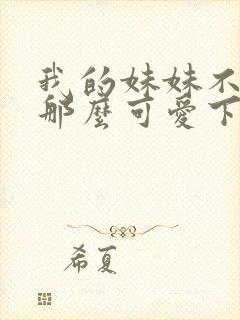 我的妹妹不
那麼可愛下
希夏